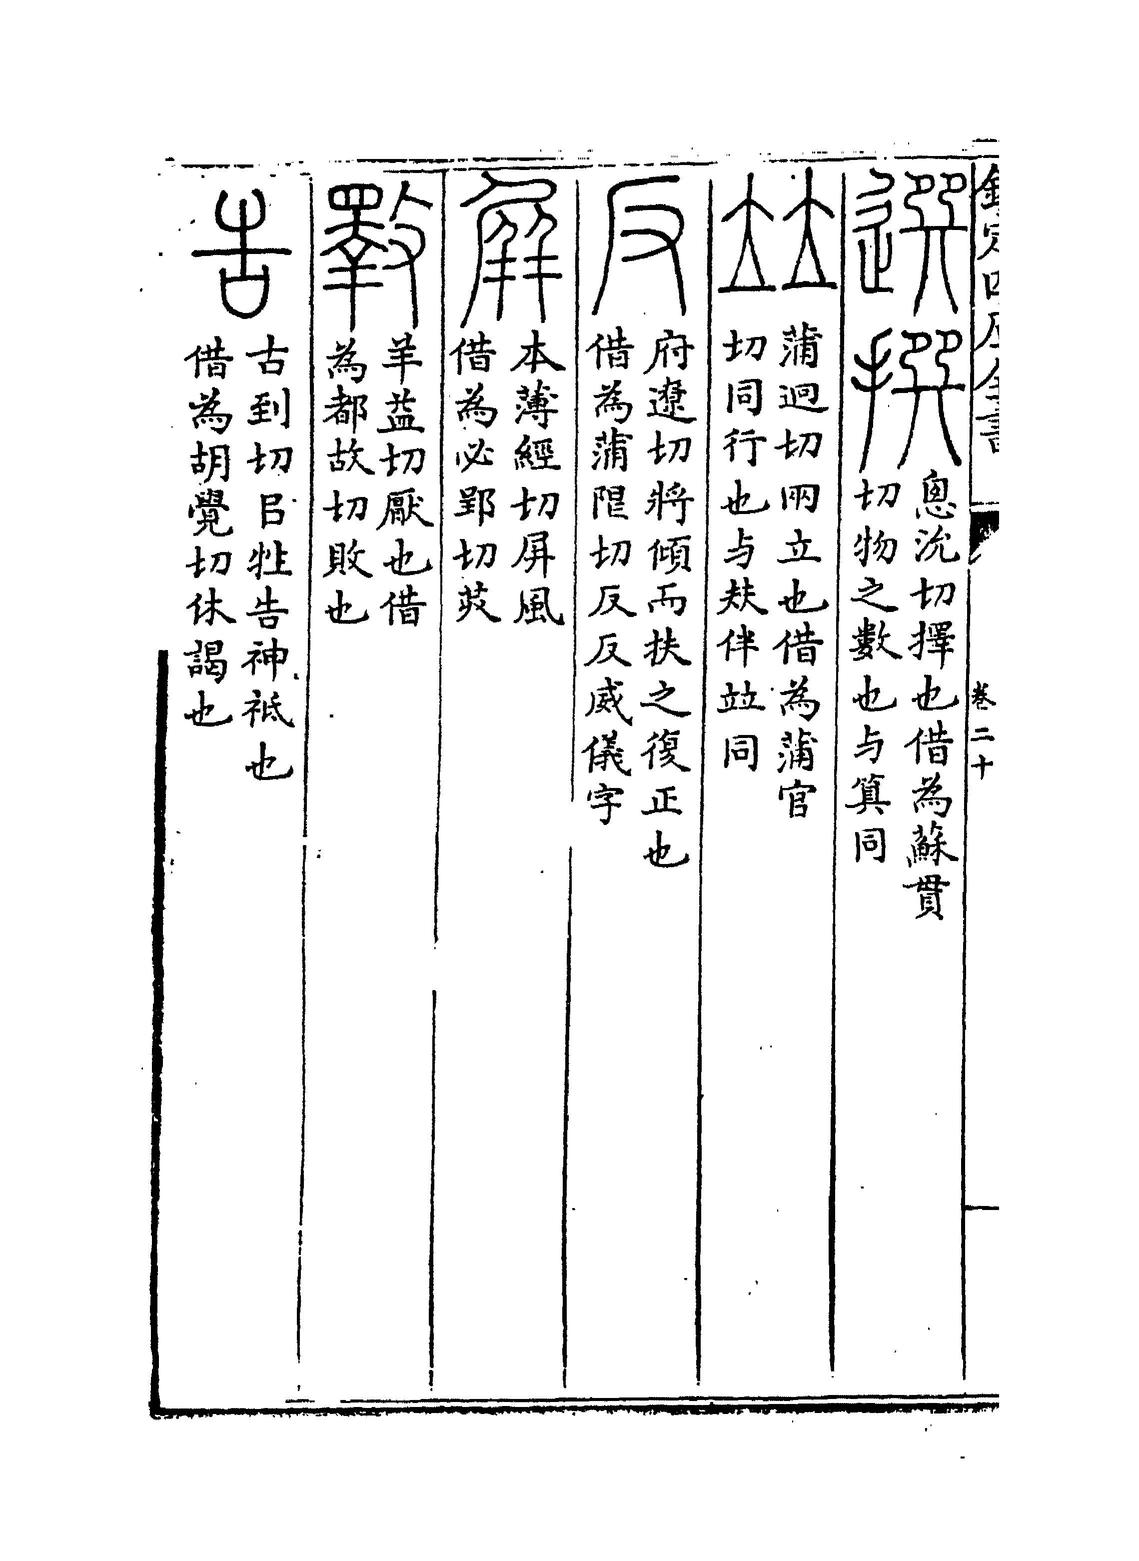 欽定四庫全書
卷二十
選撰
息沇切擇也借為蘇貫
切物之數也与算同
竝
蒲迥切兩立也借為蒲官
切同行也与㚘伴竝同
反
府遼切將傾而扶之復正也
借為蒲限切反反威儀字
本薄經切屏風
借為必郢切蔽
斁
羊益切厭也借
為都故切敗也
告
古到切㠯牲告神祗也
借為胡覺切休謁也